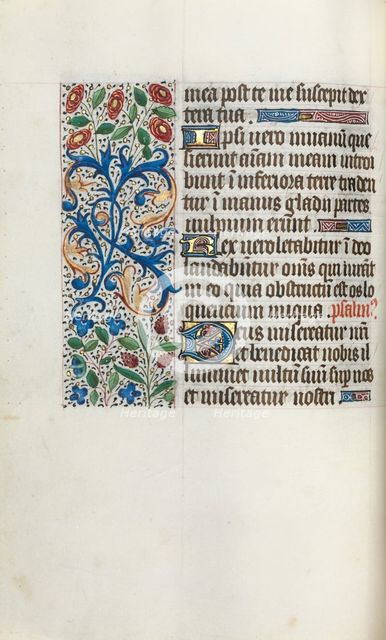 mea post te me suscepit dex
tera tua.
Ipsi vero in vanum que
sierunt aīam meam introi
bunt ī inferiora terre traden
tur ī manus gladii partes
vulpium erunt.
Rex vero letabitur ī deo
laudabuntur omīs qui iurāt
in eo quia obstructū est os lo
quentium iniqua. psalm⁹.
Deus misereatur nrī
et benedicat nobis il
luminet vultū suū sup nos
et misereatur nostri.
Heritage
Heritage